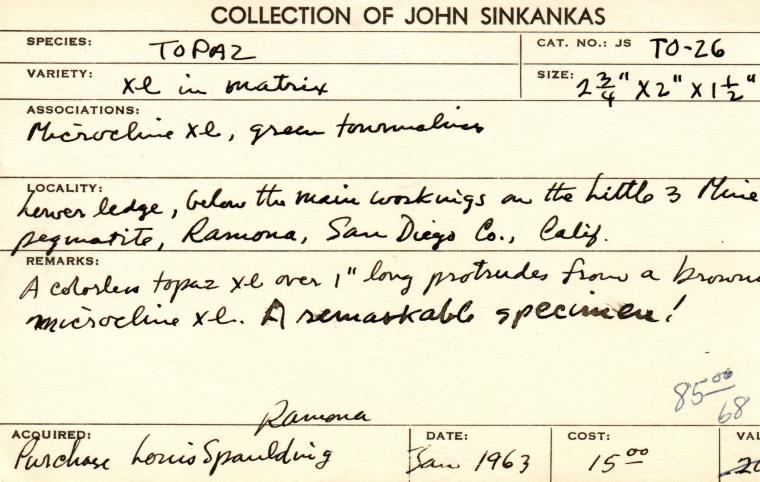 COLLECTION OF JOHN SINKANKAS
SPECIES: TOPAZ
CAT. NO.: JS TO-26
VARIETY: xl in matrix
SIZE: 2 3/4" X 2" X 1 1/2"
ASSOCIATIONS:
Microcline xl, green tourmalines
LOCALITY:
Lower ledge, below the main workings on the Little 3 Mine
pegmatite, Ramona, San Diego Co., Calif.
REMARKS:
A colorless topaz xl over 1" long protrudes from a brown
microcline xl. A remarkable specimen!
85.00
68
Ramona
ACQUIRED: Purchase Louis Spaulding
DATE: Jan 1963
COST: 15.00
VAL